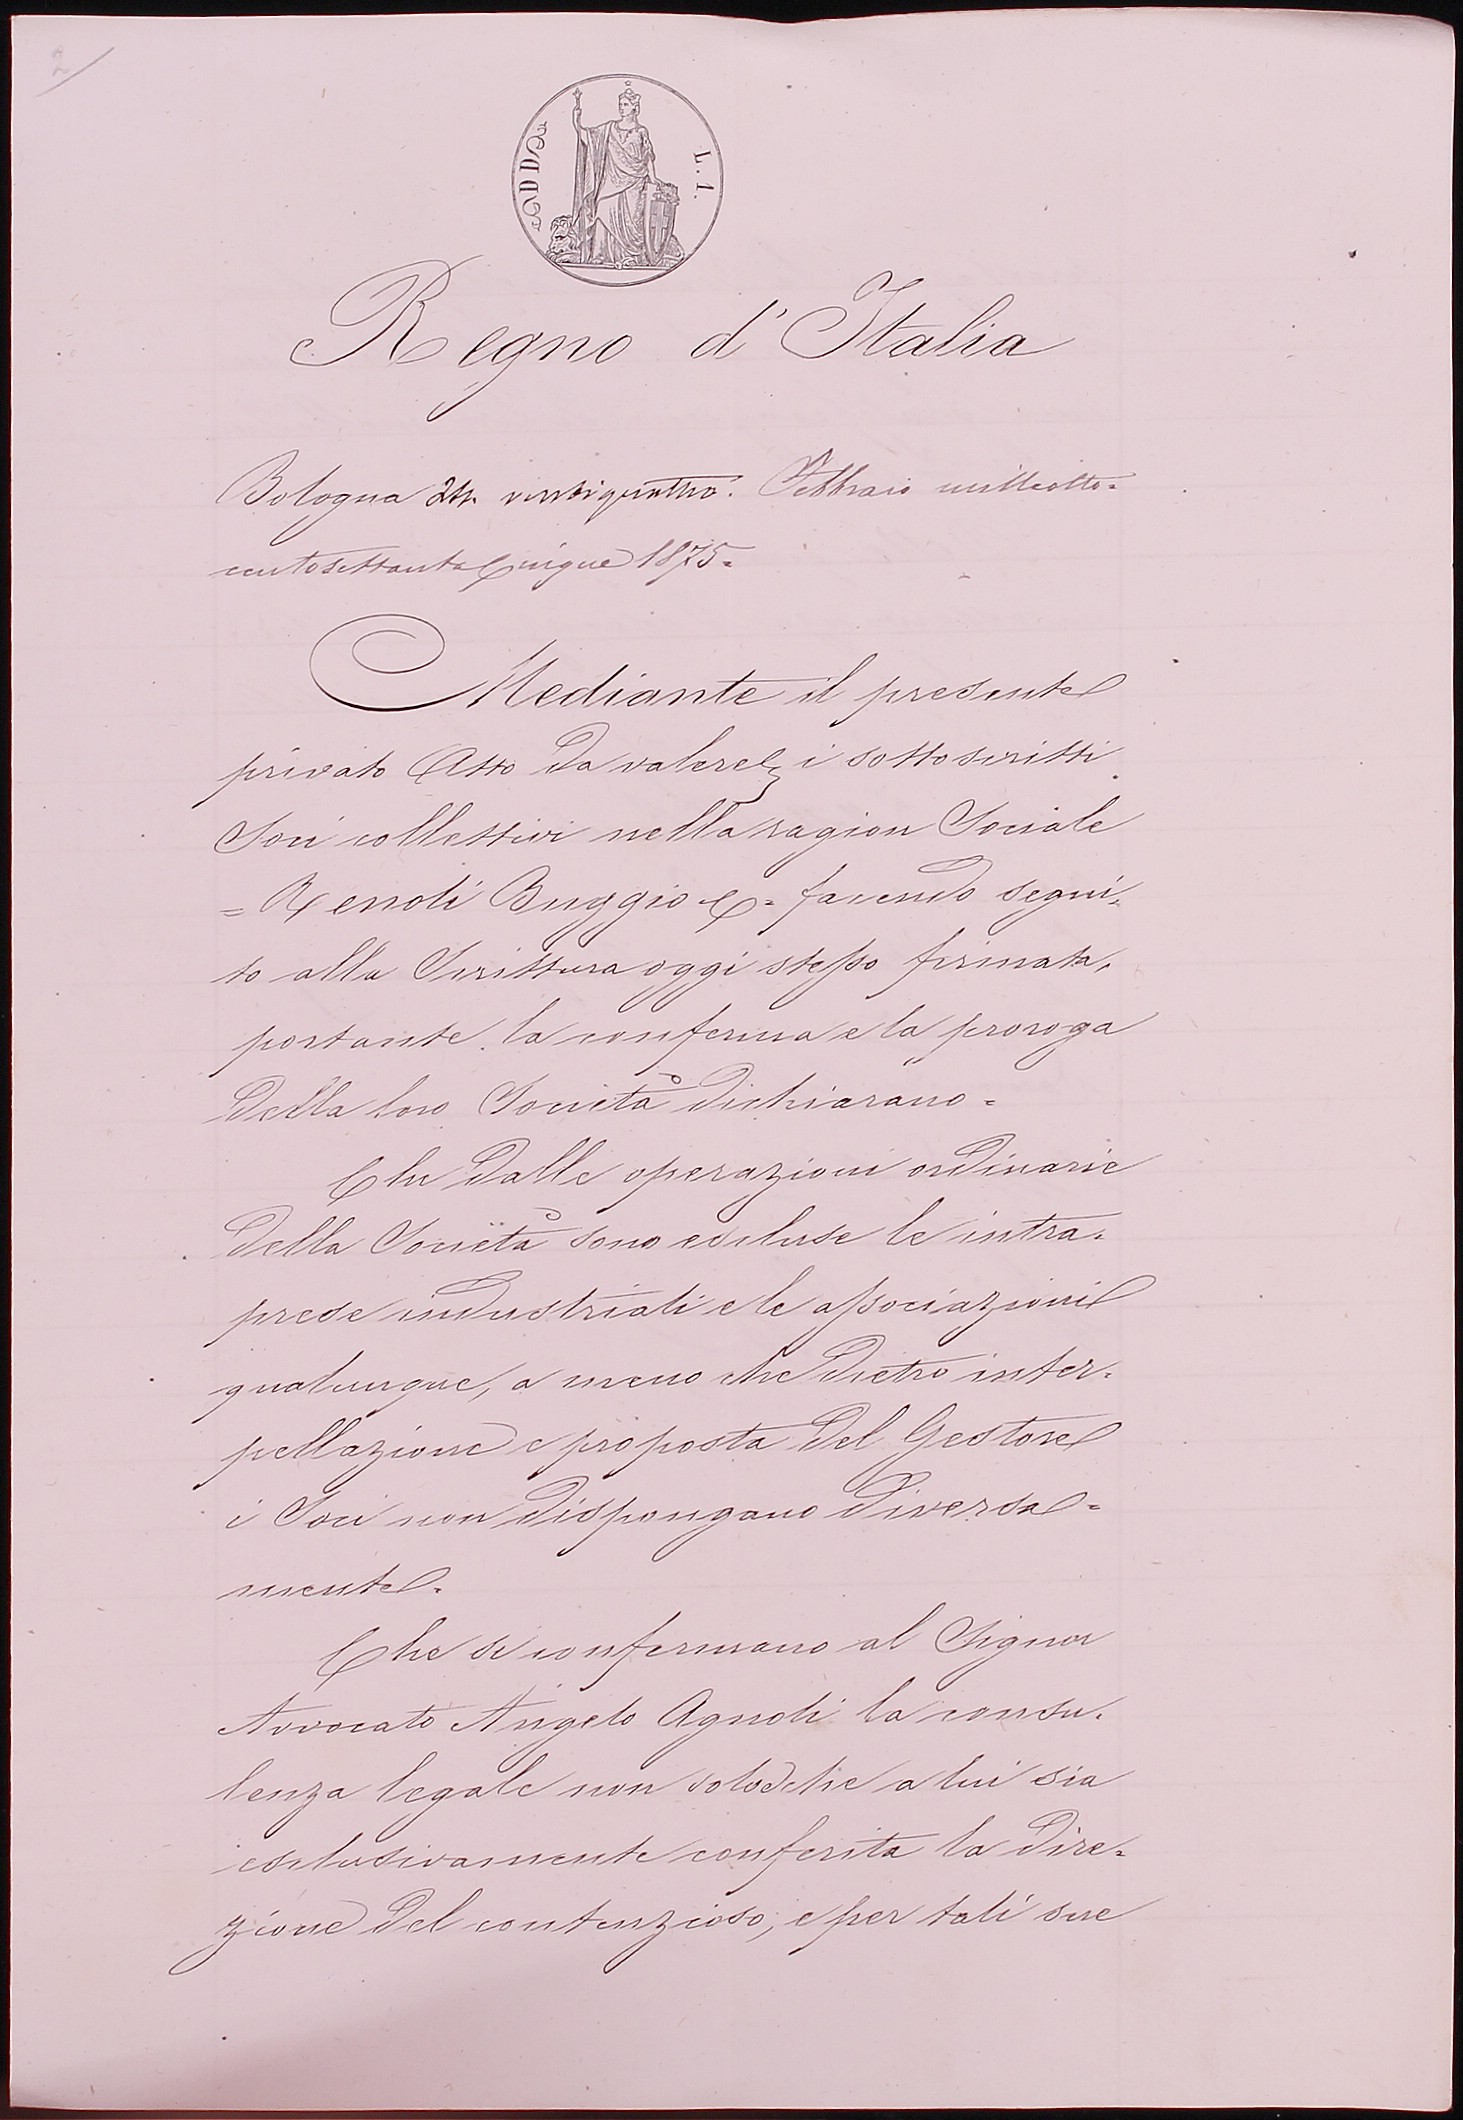 L. 1.
Regno d'Italia
Bologna 24. ventiquattro. Febbraio milleotto=
centosettantaCinque 1875=
Mediante il presente
privato Atto da valere, i sottoscritti
Soci collettivi nella ragion Sociale
= Renoli Buggio e C.= facendo segui=
to alla Scrittura oggi stesso firmata,
portante la conferma e la proroga
della loro Società dichiarano=
Che dalle operazioni ordinarie
della Società sono escluse le intra=
prese industriali e le associazioni
qualunque, a meno che dietro inter=
pellazione e proposta del Gestore
i Soci non dispongano diversa=
mente.
Che si confermano al Signor
Avvocato Angelo Agnoli la consu=
lenza legale non solo che a lui sia
esclusivamente conferita la dire=
zione del contenzioso, e per tali sue